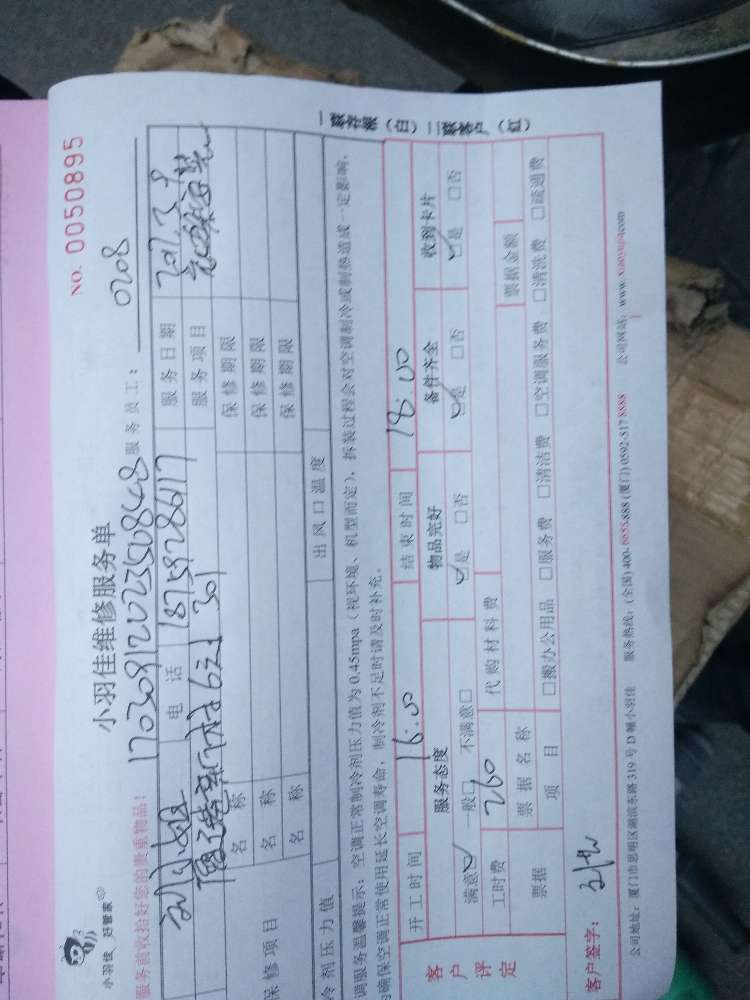 一联存根（白）二联客户（红）
小羽佳 好管家
小羽佳维修服务单
NO. 0050895
服务前收拾好您的贵重物品：
170308120235508648
服务员工：
0208
电 话
18758286917
服务日期
服务项目
301
名 称
保修期限
保修项目
名 称
保修期限
名 称
保修期限
冷剂压力值
出风口温度
调服务温馨提示：空调正常制冷剂压力值为 0.45mpa（视环境、机型而定），拆装过程会对空调制冷或制热造成一定影响，
为确保空调正常使用延长空调寿命，制冷剂不足时请及时补充。
客 户 评 定
开工时间
16:00
结束时间
18:00
服务态度
物品完好
备件齐全
收到卡片
满意☑ 一般□ 不满意□
☑是 □否
☑是 □否
☑是 □否
工时费
260
代购材料费
票据
票据名称
票据金额
项 目
□搬办公用品 □服务费 □清洁费 □空调服务费 □清洗费 □疏通费
客户签字：
公司地址：厦门市思明区湖滨东路 319 号 D 幢小羽佳 服务热线：(全国) 400-8655-888 (厦门) 0592-817 8888 公司网站：www.xiaoyujia.com